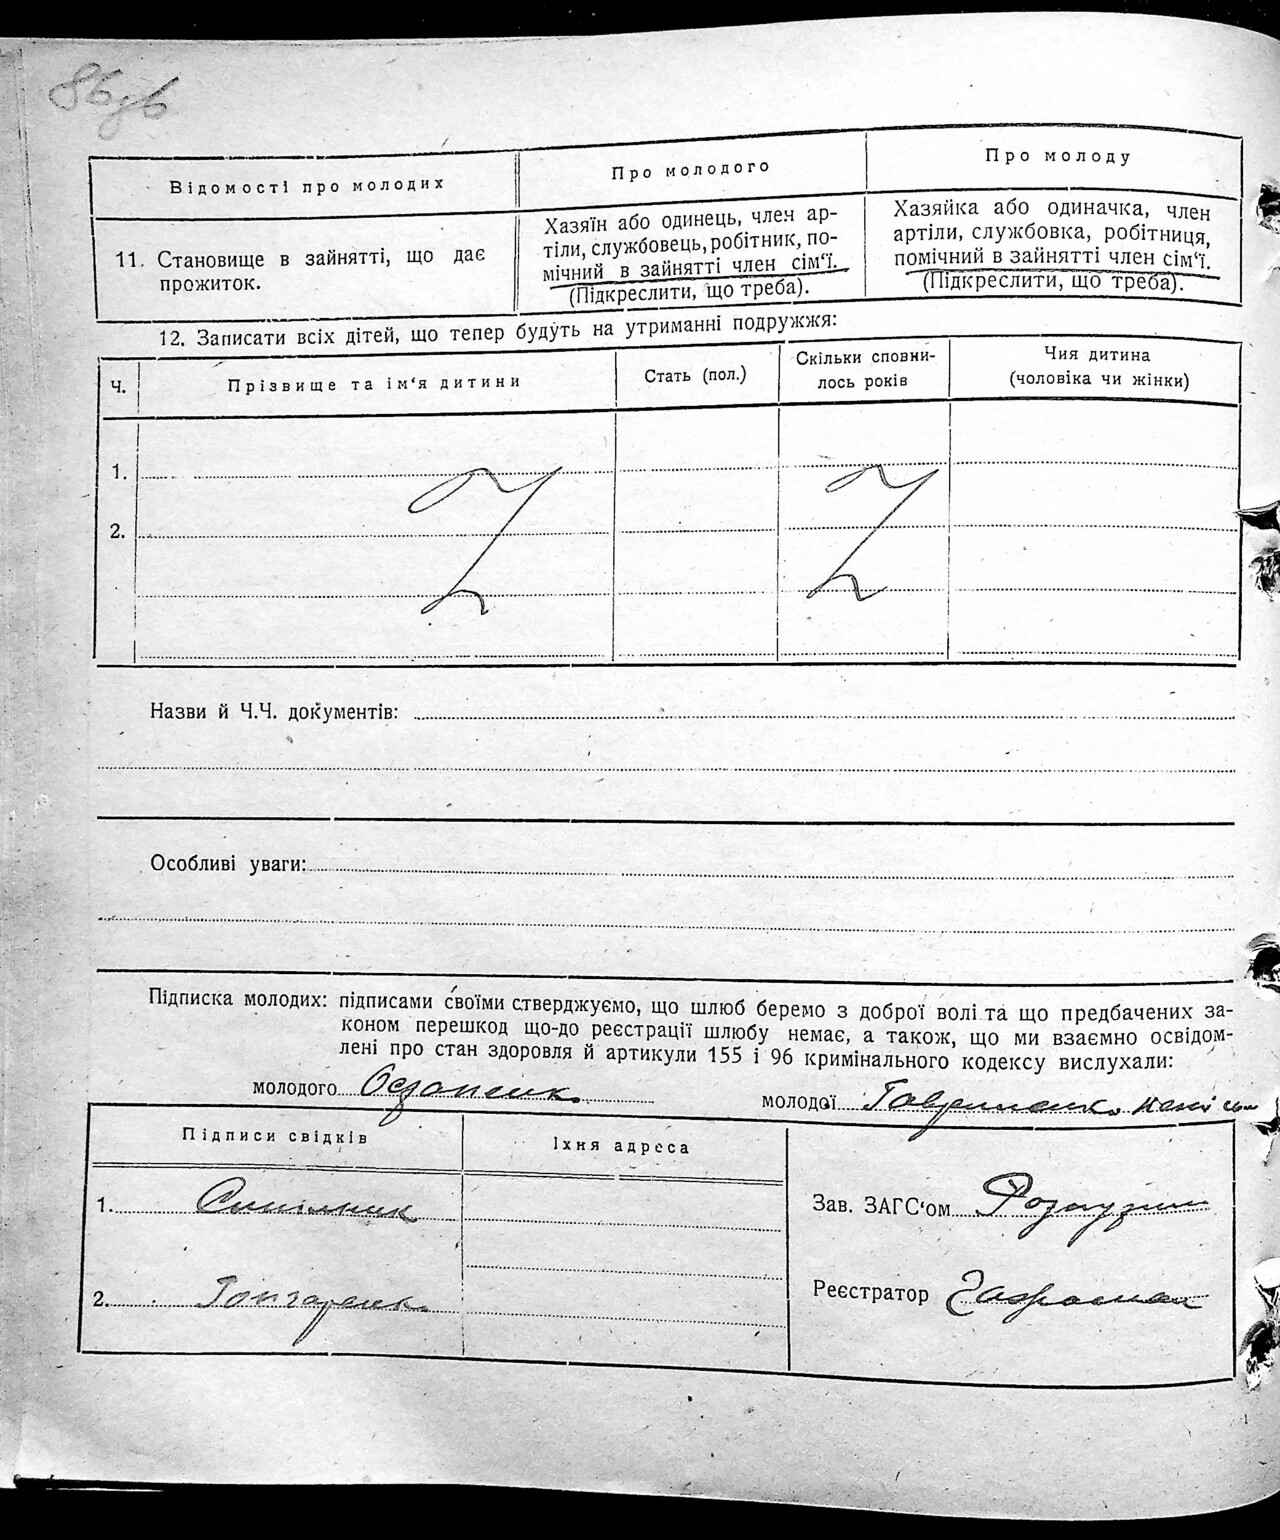 86зв
Відомості про молодих
Про молодого
Про молоду
11. Становище в зайнятті, що дає
прожиток.
Хазяїн або одинець, член ар-
тіли, службовець, робітник, по-
мічний в зайнятті член сім'ї.
(Підкреслити, що треба).
Хазяйка або одиначка, член
артіли, службовка, робітниця,
помічний в зайнятті член сім'ї.
(Підкреслити, що треба).
12. Записати всіх дітей, що тепер будуть на утриманні подружжя:
Ч.
Прізвище та ім'я дитини
Стать (пол.)
Скільки сповни-
лось років
Чия дитина
(чоловіка чи жінки)
1.
2.
Назви й Ч.Ч. документів:
Особливі уваги:
Підписка молодих: підписами своїми стверджуємо, що шлюб беремо з доброї волі та що предбачених за-
коном перешкод що-до реєстрації шлюбу немає, а також, що ми взаємно освідом-
лені про стан здоровля й артикули 155 і 96 кримінального кодексу вислухали:
молодого Остапенко
молодої Гавриленко
Підписи свідків
Їхня адреса
1.
2. Гончаренко
Зав. ЗАГС'ом
Реєстратор